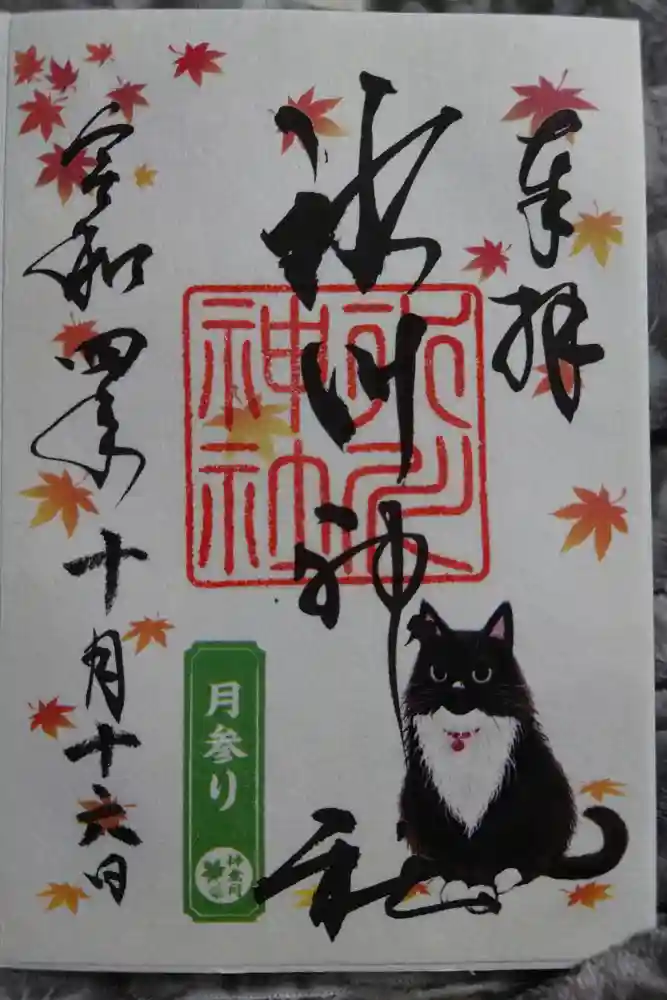 奉拝
氷川神社
氷川神社
令和四年十月十六日
月参り
神無月